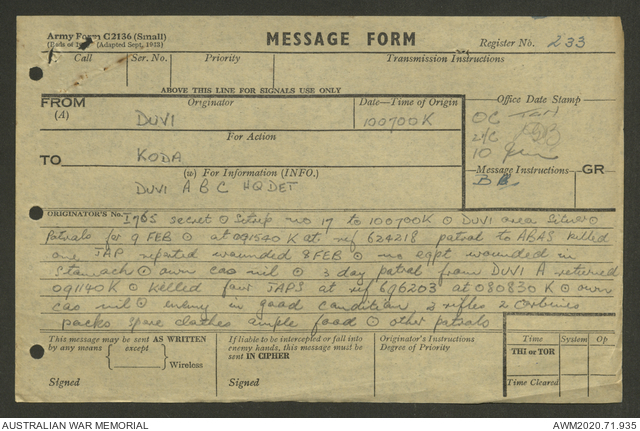 Army Form C2136 (Small)
(Adapted Sept., 1942)
MESSAGE FORM
Register No. 233
Call
Ser. No.
Priority
Transmission Instructions
ABOVE THIS LINE FOR SIGNALS USE ONLY
FROM
(A)
Originator
DUVI
Date—Time of Origin
100700K
Office Date Stamp
OC
2/C
10
For Action
TO
KODA
(w) For Information (INFO.)
DUVI A B C HQ DET
Message Instructions
GR
ORIGINATOR'S No. I765 secret ⊙ Sitrep no 17 to 100700K ⊙ DUVI area
Patrols for 9 FEB ⊙ at 091540K at ref 624218 patrol to ABAS killed
one JAP reported wounded 8 FEB ⊙ no eqpt wounded in
Stomach ⊙ own cas nil ⊙ 3 day patrol from DUVI A returned
091140K ⊙ killed four JAPS at ref 696203 at 080830K ⊙ own
cas nil ⊙ enemy in good condition 2 rifles 2 carbines
packs spare clothes ample food ⊙ other patrols
This message may be sent AS WRITTEN
by any means
except
Wireless
Signed
If liable to be intercepted or fall into
enemy hands, this message must be
sent IN CIPHER
Signed
Originator's Instructions
Degree of Priority
Time
System
Op
THI or TOR
Time Cleared
AUSTRALIAN WAR MEMORIAL
AWM2020.71.935